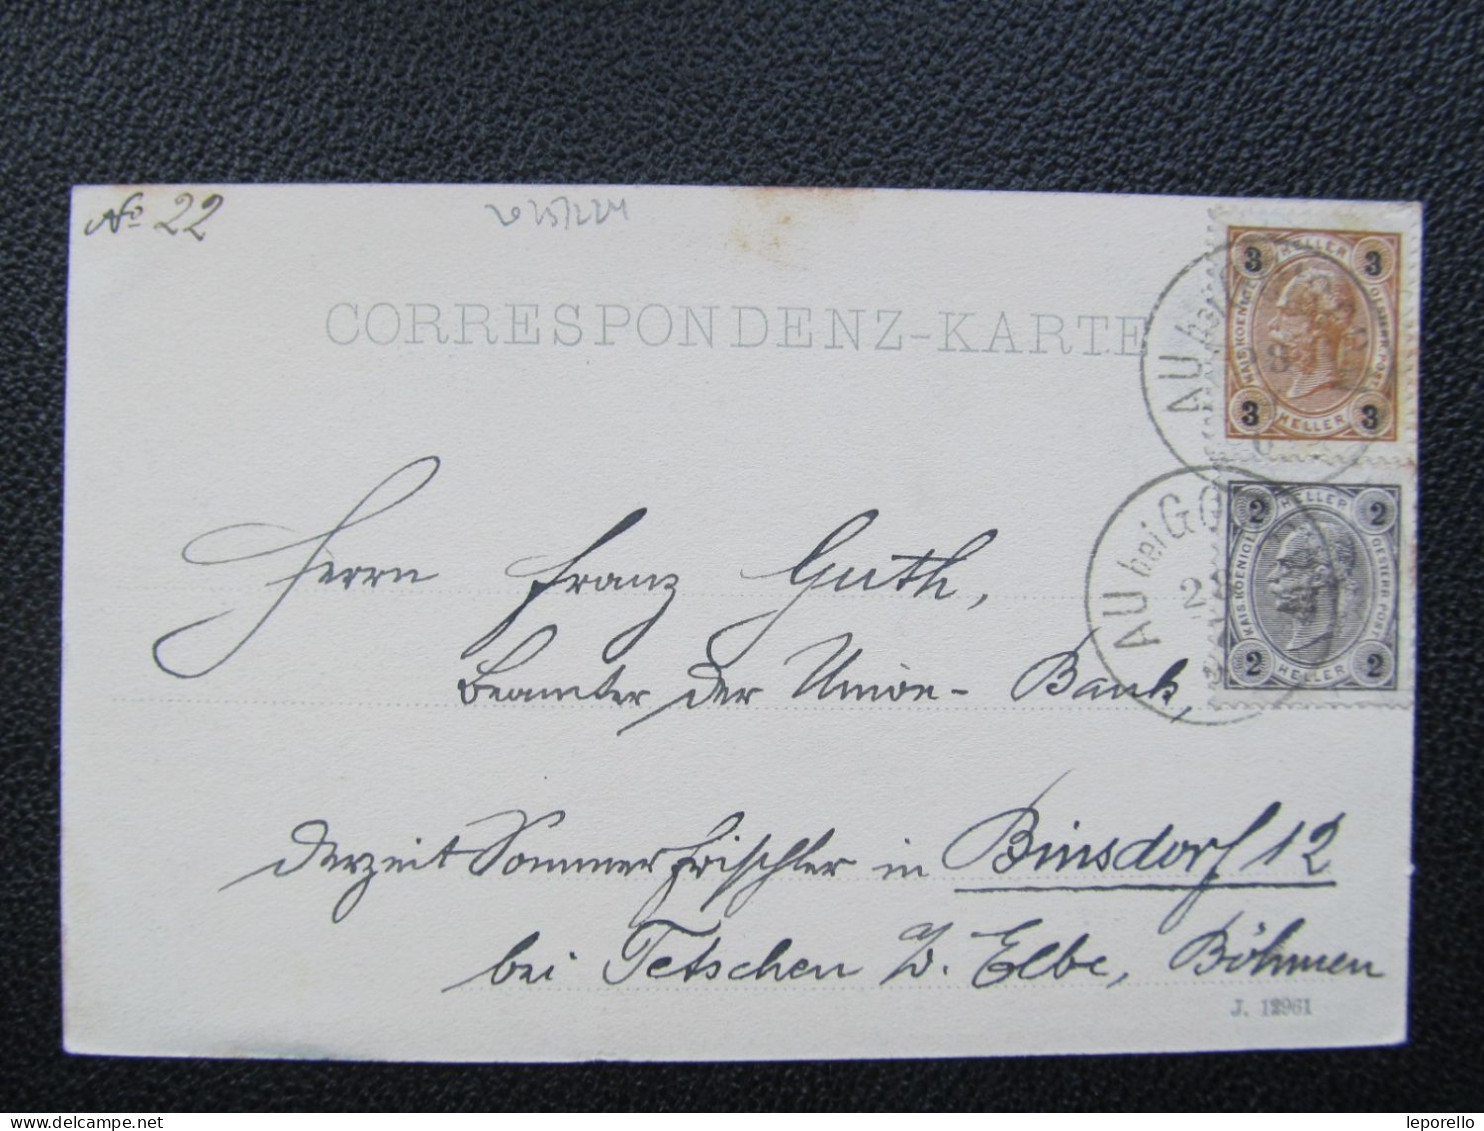 No 22
CORRESPONDENZ-KARTE
3 HELLER 3
KAIS. KOENIGL. OESTERR. POST
3 HELLER 3
AU bei
2 HELLER 2
KAIS. KOENIGL. OESTERR. POST
2 HELLER 2
AU bei GO
Herrn Franz Guth,
Beamter der Union-Bank,
derzeit Sommerfrischler in Binsdorf 12
bei Tetschen a/d. Elbe, Böhmen
J. 12961
www.delcampe.net
leporello